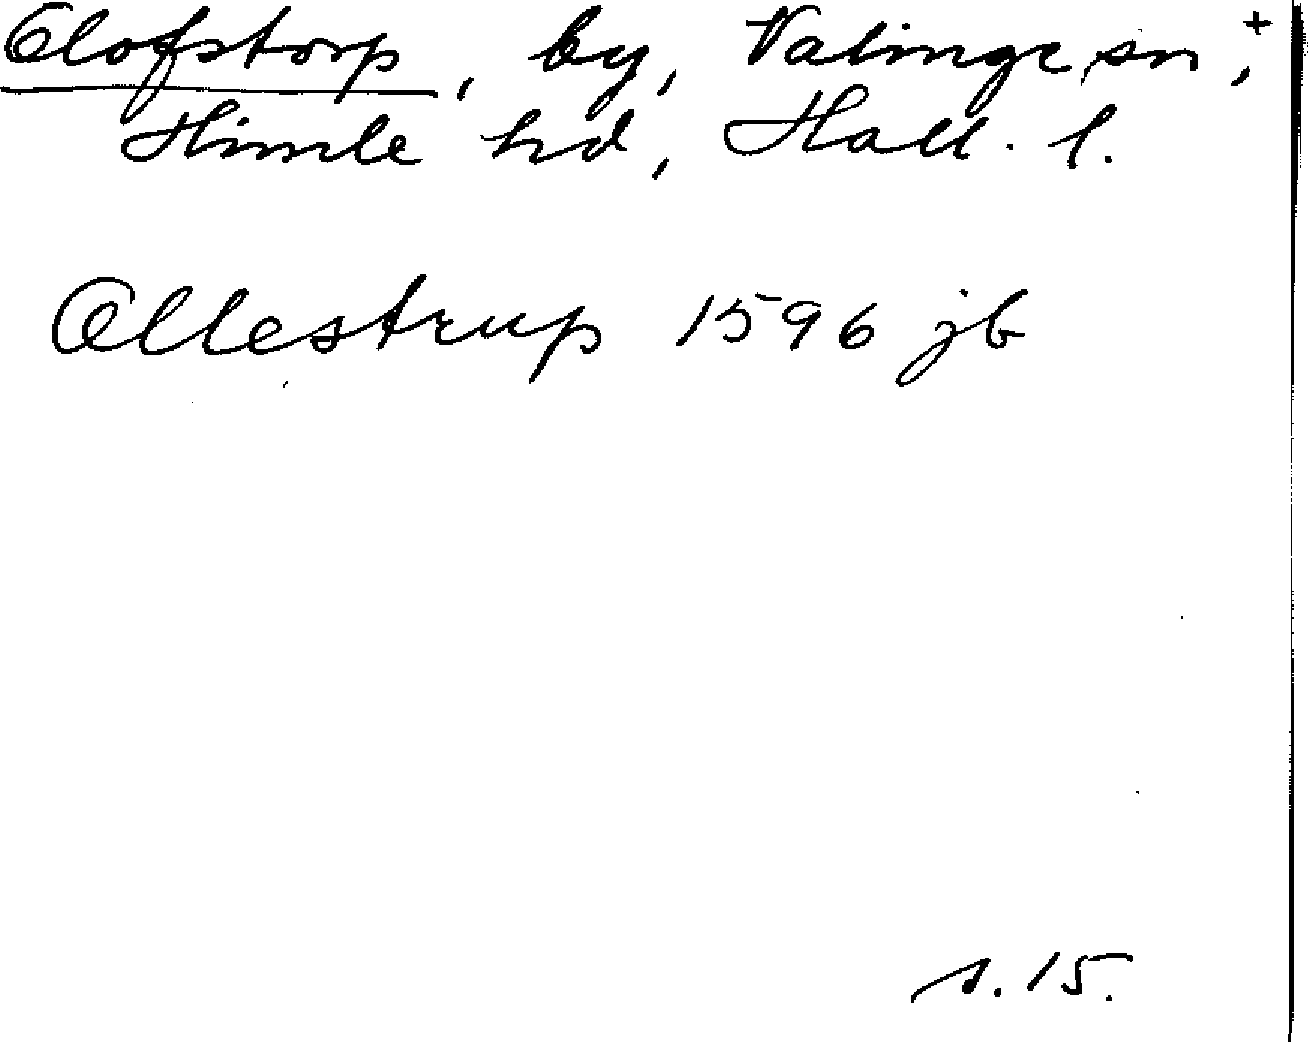 Olofstorp, by, Valinge sn, +
Himle hd, Hall. l.
Ollestrup 1596 jb
s. 15.